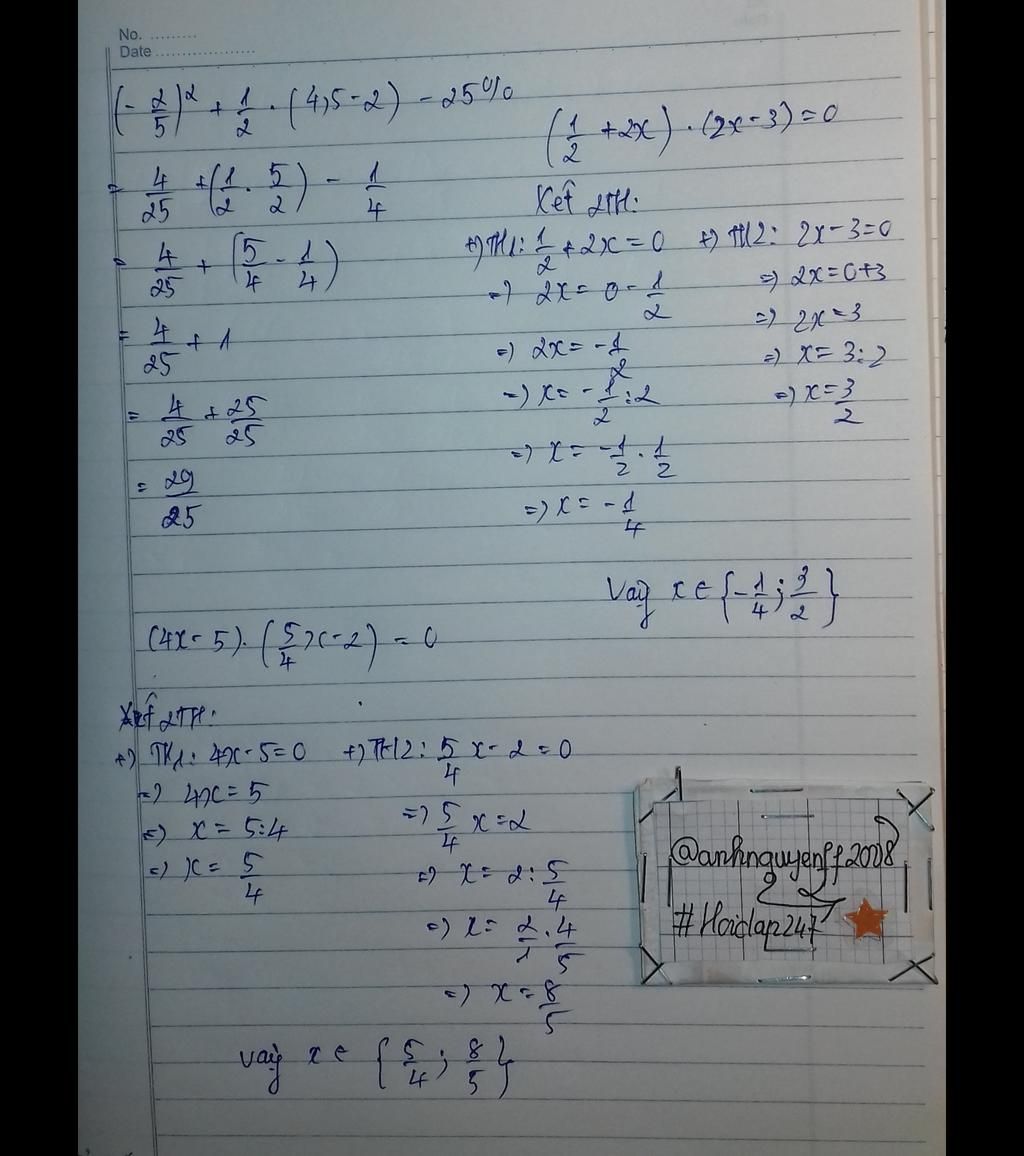 No. .........
Date ...................
(-2/5)² + 1/2 . (4,5 - 2) - 25%
= 4/25 + (1/2 . 5/2) - 1/4
= 4/25 + (5/4 - 1/4)
= 4/25 + 1
= 4/25 + 25/25
= 29/25
(1/2 + 2x) . (2x - 3) = 0
Xét 2TH:
+) TH1: 1/2 + 2x = 0
=) 2x = 0 - 1/2
=) 2x = -1/2
=) x = -1/2 : 2
=) x = -1/2 . 1/2
=) x = -1/4
+) TH2: 2x - 3 = 0
=) 2x = 0 + 3
=) 2x = 3
=) x = 3 : 2
=) x = 3/2
Vậy x ∈ {-1/4 ; 3/2}
(4x - 5) . (5/4 x - 2) = 0
Xét 2TH:
+) TH1: 4x - 5 = 0
=) 4x = 5
=) x = 5 : 4
=) x = 5/4
+) TH2: 5/4 x - 2 = 0
=) 5/4 x = 2
=) x = 2 : 5/4
=) x = 2/1 . 4/5
=) x = 8/5
Vậy x ∈ {5/4 ; 8/5}
@anhnguyenff2008
#Hoidap247